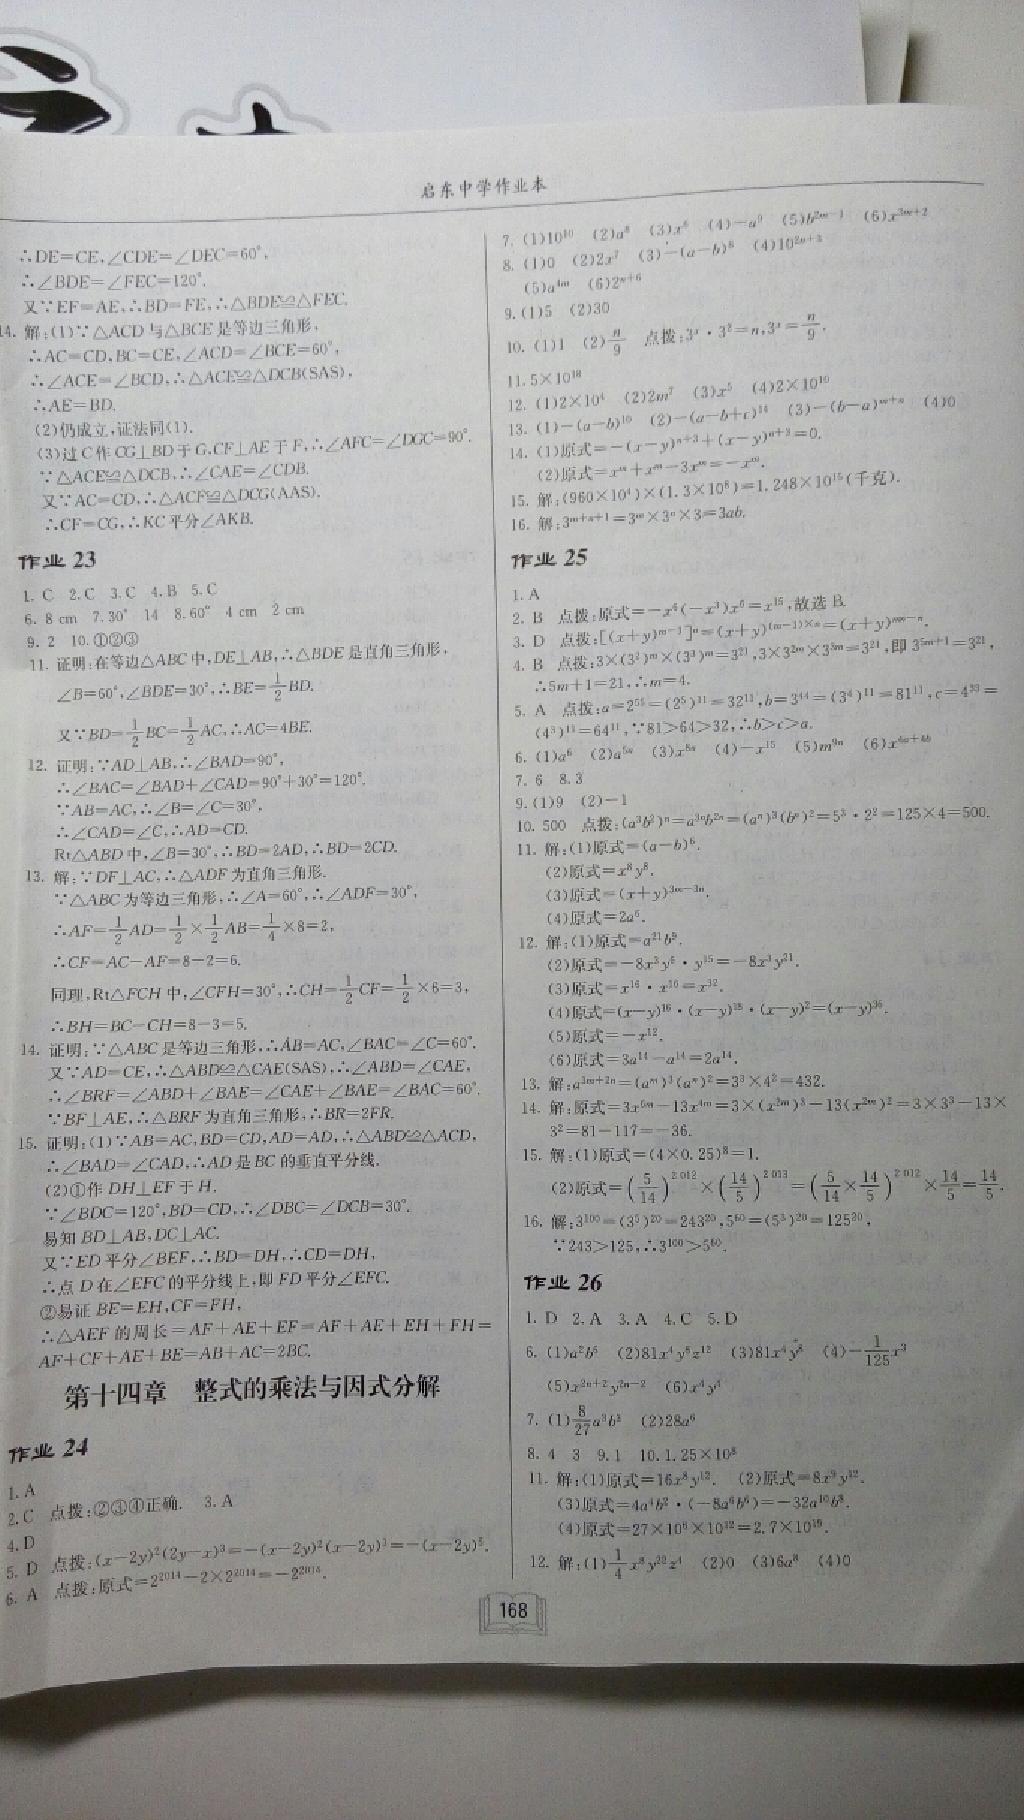 启东中学作业本
∴DE=CE,∠CDE=∠DEC=60°,
∴∠BDE=∠FEC=120°.
又∵EF=AE,∴BD=FE,∴△BDE≌△FEC.
14. 解:(1)∵△ACD与△BCE是等边三角形,
∴AC=CD,BC=CE,∠ACD=∠BCE=60°,
∴∠ACE=∠BCD,∴△ACE≌△DCB(SAS),
∴AE=BD.
(2)仍成立,证法同(1).
(3)过C作CG⊥BD于G,CF⊥AE于F,∴∠AFC=∠DGC=90°.
∵△ACE≌△DCB,∴∠CAE=∠CDB.
又∵AC=CD,∴△ACF≌△DCG(AAS).
∴CF=CG,∴KC平分∠AKB.
作业 23
1. C 2. C 3. C 4. B 5. C
6. 8 cm 7. 30° 14 8. 60° 4 cm 2 cm
9. 2 10. ①②③
11. 证明:在等边△ABC中,DE⊥AB,∴△BDE是直角三角形,
∠B=60°,∠BDE=30°,∴BE=1/2BD.
又∵BD=1/2BC=1/2AC,∴AC=4BE.
12. 证明:∵AD⊥AB,∴∠BAD=90°,
∴∠BAC=∠BAD+∠CAD=90°+30°=120°.
∵AB=AC,∴∠B=∠C=30°,
∴∠CAD=∠C,∴AD=CD.
Rt△ABD中,∠B=30°,∴BD=2AD,∴BD=2CD.
13. 解:∵DF⊥AC,∴△ADF为直角三角形.
∵△ABC为等边三角形,∴∠A=60°,∴∠ADF=30°,
∴AF=1/2AD=1/2×1/2AB=1/4×8=2,
∴CF=AC-AF=8-2=6.
同理,Rt△FCH中,∠CFH=30°,∴CH=1/2CF=1/2×6=3,
∴BH=BC-CH=8-3=5.
14. 证明:∵△ABC是等边三角形,∴AB=AC,∠BAC=∠C=60°.
又∵AD=CE,∴△ABD≌△CAE(SAS),∴∠ABD=∠CAE,
∴∠BRF=∠ABD+∠BAE=∠CAE+∠BAE=∠BAC=60°.
∵BF⊥AE,∴△BRF为直角三角形,∴BR=2FR.
15. 证明:(1)∵AB=AC,BD=CD,AD=AD,∴△ABD≌△ACD,
∴∠BAD=∠CAD,∴AD是BC的垂直平分线.
(2)①作DH⊥EF于H.
∵∠BDC=120°,BD=CD,∴∠DBC=∠DCB=30°.
易知BD⊥AB,DC⊥AC.
又∵ED平分∠BEF,∴BD=DH,∴CD=DH,
∴点D在∠EFC的平分线上,即FD平分∠EFC.
②易证BE=EH,CF=FH,
∴△AEF的周长=AF+AE+EF=AF+AE+EH+FH=
AF+CF+AE+BE=AB+AC=2BC.
第十四章 整式的乘法与因式分解
作业 24
1. A
2. C 点拨:②③④正确. 3. A
4. D
5. D 点拨:(x-2y)²(2y-x)³=-(x-2y)²(x-2y)³=-(x-2y)⁵.
6. A 点拨:原式=2²⁰¹⁴-2×2²⁰¹⁴=-2²⁰¹⁴.
7. (1)10¹⁰ (2)a⁸ (3)x⁶ (4)-a⁹ (5)b²ᵐ⁻¹ (6)x³ᵐ⁺²
8. (1)0 (2)2x⁷ (3)-(a-b)⁸ (4)10²ⁿ⁺³
(5)a⁴ᵐ (6)2ⁿ⁺⁶
9. (1)5 (2)30
10. (1)1 (2)n/9 点拨:3ˣ·3²=n,3ˣ=n/9.
11. 5×10¹⁸
12. (1)2×10⁴ (2)2m⁷ (3)x⁵ (4)2×10¹⁰
13. (1)-(a-b)¹⁰ (2)-(a-b+c)¹⁴ (3)-(b-a)ᵐ⁺ⁿ (4)0
14. (1)原式=-(x-y)ⁿ⁺³+(x-y)ⁿ⁺³=0.
(2)原式=xᵐ+xᵐ-3xᵐ=-xᵐ.
15. 解:(960×10⁴)×(1.3×10⁸)=1.248×10¹⁵(千克).
16. 解:3ᵐ⁺ⁿ⁺¹=3ᵐ×3ⁿ×3=3ab.
作业 25
1. A
2. B 点拨:原式=-x⁶(-x³)x⁶=x¹⁵,故选B.
3. D 点拨:[(x+y)ᵐ⁻¹]ⁿ=(x+y)⁽ᵐ⁻¹⁾ˣⁿ=(x+y)ᵐⁿ⁻ⁿ.
4. B 点拨:3×(3²)ᵐ×(3³)ᵐ=3²¹,3×3²ᵐ×3³ᵐ=3²¹,即3⁵ᵐ⁺¹=3²¹,
∴5m+1=21,∴m=4.
5. A 点拨:a=2⁵⁵=(2⁵)¹¹=32¹¹,b=3⁴⁴=(3⁴)¹¹=81¹¹,c=4³³=
(4³)¹¹=64¹¹,∵81>64>32,∴b>c>a.
6. (1)a⁶ (2)a⁵ⁿ (3)x⁸ⁿ (4)-x¹⁵ (5)m⁹ⁿ (6)x⁴ᵃ⁺⁴ᵇ
7. 6 8. 3
9. (1)9 (2)-1
10. 500 点拨:(a³b²)ⁿ=a³ⁿb²ⁿ=(aⁿ)³(bⁿ)²=5³·2²=125×4=500.
11. 解:(1)原式=(a-b)⁶.
(2)原式=x⁸y⁸.
(3)原式=(x+y)³ᵐ⁻³ⁿ.
(4)原式=2a⁶.
12. 解:(1)原式=a²¹b⁹.
(2)原式=-8x³y⁶·y¹⁵=-8x³y²¹.
(3)原式=x¹⁶·x¹⁶=x³².
(4)原式=(x-y)¹⁶·(x-y)¹⁸·(x-y)²=(x-y)³⁶.
(5)原式=-x¹².
(6)原式=3a¹⁴-a¹⁴=2a¹⁴.
13. 解:a³ᵐ⁺²ⁿ=(aᵐ)³(aⁿ)²=3³×4²=432.
14. 解:原式=3x⁶ᵐ-13x⁴ᵐ=3×(x²ᵐ)³-13(x²ᵐ)²=3×3³-13×
3²=81-117=-36.
15. 解:(1)原式=(4×0.25)⁸=1.
(2)原式=(5/14)²⁰¹²×(14/5)²⁰¹³=(5/14×14/5)²⁰¹²×14/5=14/5.
16. 解:3¹⁰⁰=(3⁵)²⁰=243²⁰,5⁶⁰=(5³)²⁰=125²⁰,
∵243>125,∴3¹⁰⁰>5⁶⁰.
作业 26
1. D 2. A 3. A 4. C 5. D
6. (1)a²b⁶ (2)81x⁴y⁸z¹² (3)81x⁴y⁸ (4)-1/125x³
(5)x²ⁿ⁺²y²ⁿ⁻² (6)x⁴y⁴
7. (1)8/27a³b³ (2)28a⁶
8. 4 3 9. 1 10. 1.25×10⁸
11. 解:(1)原式=16x⁸y¹². (2)原式=8x⁹y¹².
(3)原式=4a⁴b²·(-8a⁶b⁶)=-32a¹⁰b⁸.
(4)原式=27×10⁶×10¹²=2.7×10¹⁹.
12. 解:(1)1/4x⁸y²²z⁴ (2)0 (3)6a⁸ (4)0
168